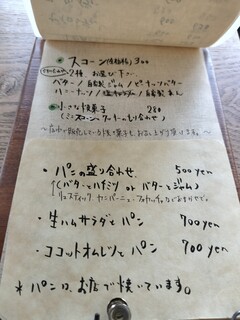 スコーン(2種類)
2種、お選び下さい。
バター / 自家製ジャム / ピーナッツバター
ハニーナッツ / 塩キャラメル / 自家製あん
小さな焼菓子 280
(ミニスコーン、クッキーのもり合わせ)
〜店内で販売している焼き菓子もお召し上がり頂けます。〜
・パンの盛り合わせ 500 yen
(バターとハチミツ or バターとジャム)
リュスティック、カンパーニュ・フォカッチャなどおまかせで。
・生ハムサラダとパン 900 yen
・ココットオムレツとパン 700 yen
* パンは、お店で焼いています。*